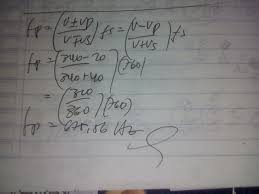 fp = (v±vp / v∓vs) fs = (v-vp / v+vs) fs
fp = (340-20 / 340+40) (760)
= (320 / 360) (760)
fp = 675,56 Hz